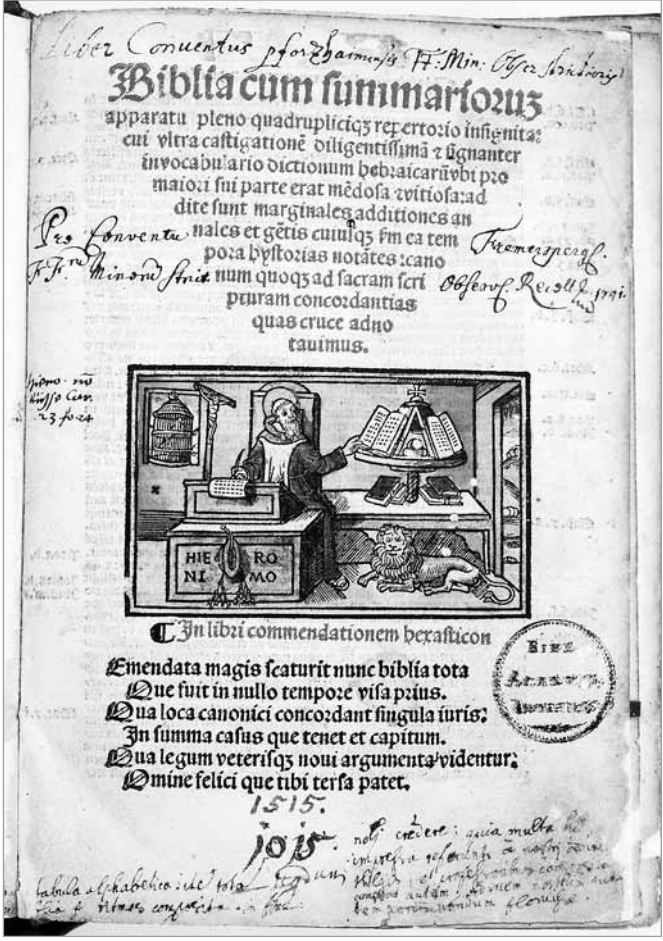 Liber Conventus pforzhaimensis FF: Min: Obser strictioris
Biblia cum summarioruȝ
apparatu pleno quadrupliciqȝ repertorio insignita:
cui vltra castigationē diligentissimā ⁊ signanter
in vocabulario dictionum hebraicarū vbi pro
maiori sui parte erat mēdosa ⁊ vitiosa: ad
dite sunt marginales additiones an
nales et gētis cuiusqȝ fm ea tem
pora hystorias notātes: cano
num quoqȝ ad sacram scri
pturam concordantias
quas cruce adno
tauimus.
Pro Conventu
Fr Fr̄ū Minorū strict.
Fremersperg.
Observ. Recoll
1791.
23 fo 24
HIE RO
NI MO
In libri commendationem hexasticon
Emendata magis scaturit nunc biblia tota
Que fuit in nullo tempore visa prius.
Qua loca canonici concordant singula iuris:
In summa casus que tenet et capitum.
Qua legum veterisqȝ noui argumenta videntur:
Omine felici que tibi tersa patet.
BIBL
1515.
noli credere: quia multa
impressa
tabula alphabetica: tota